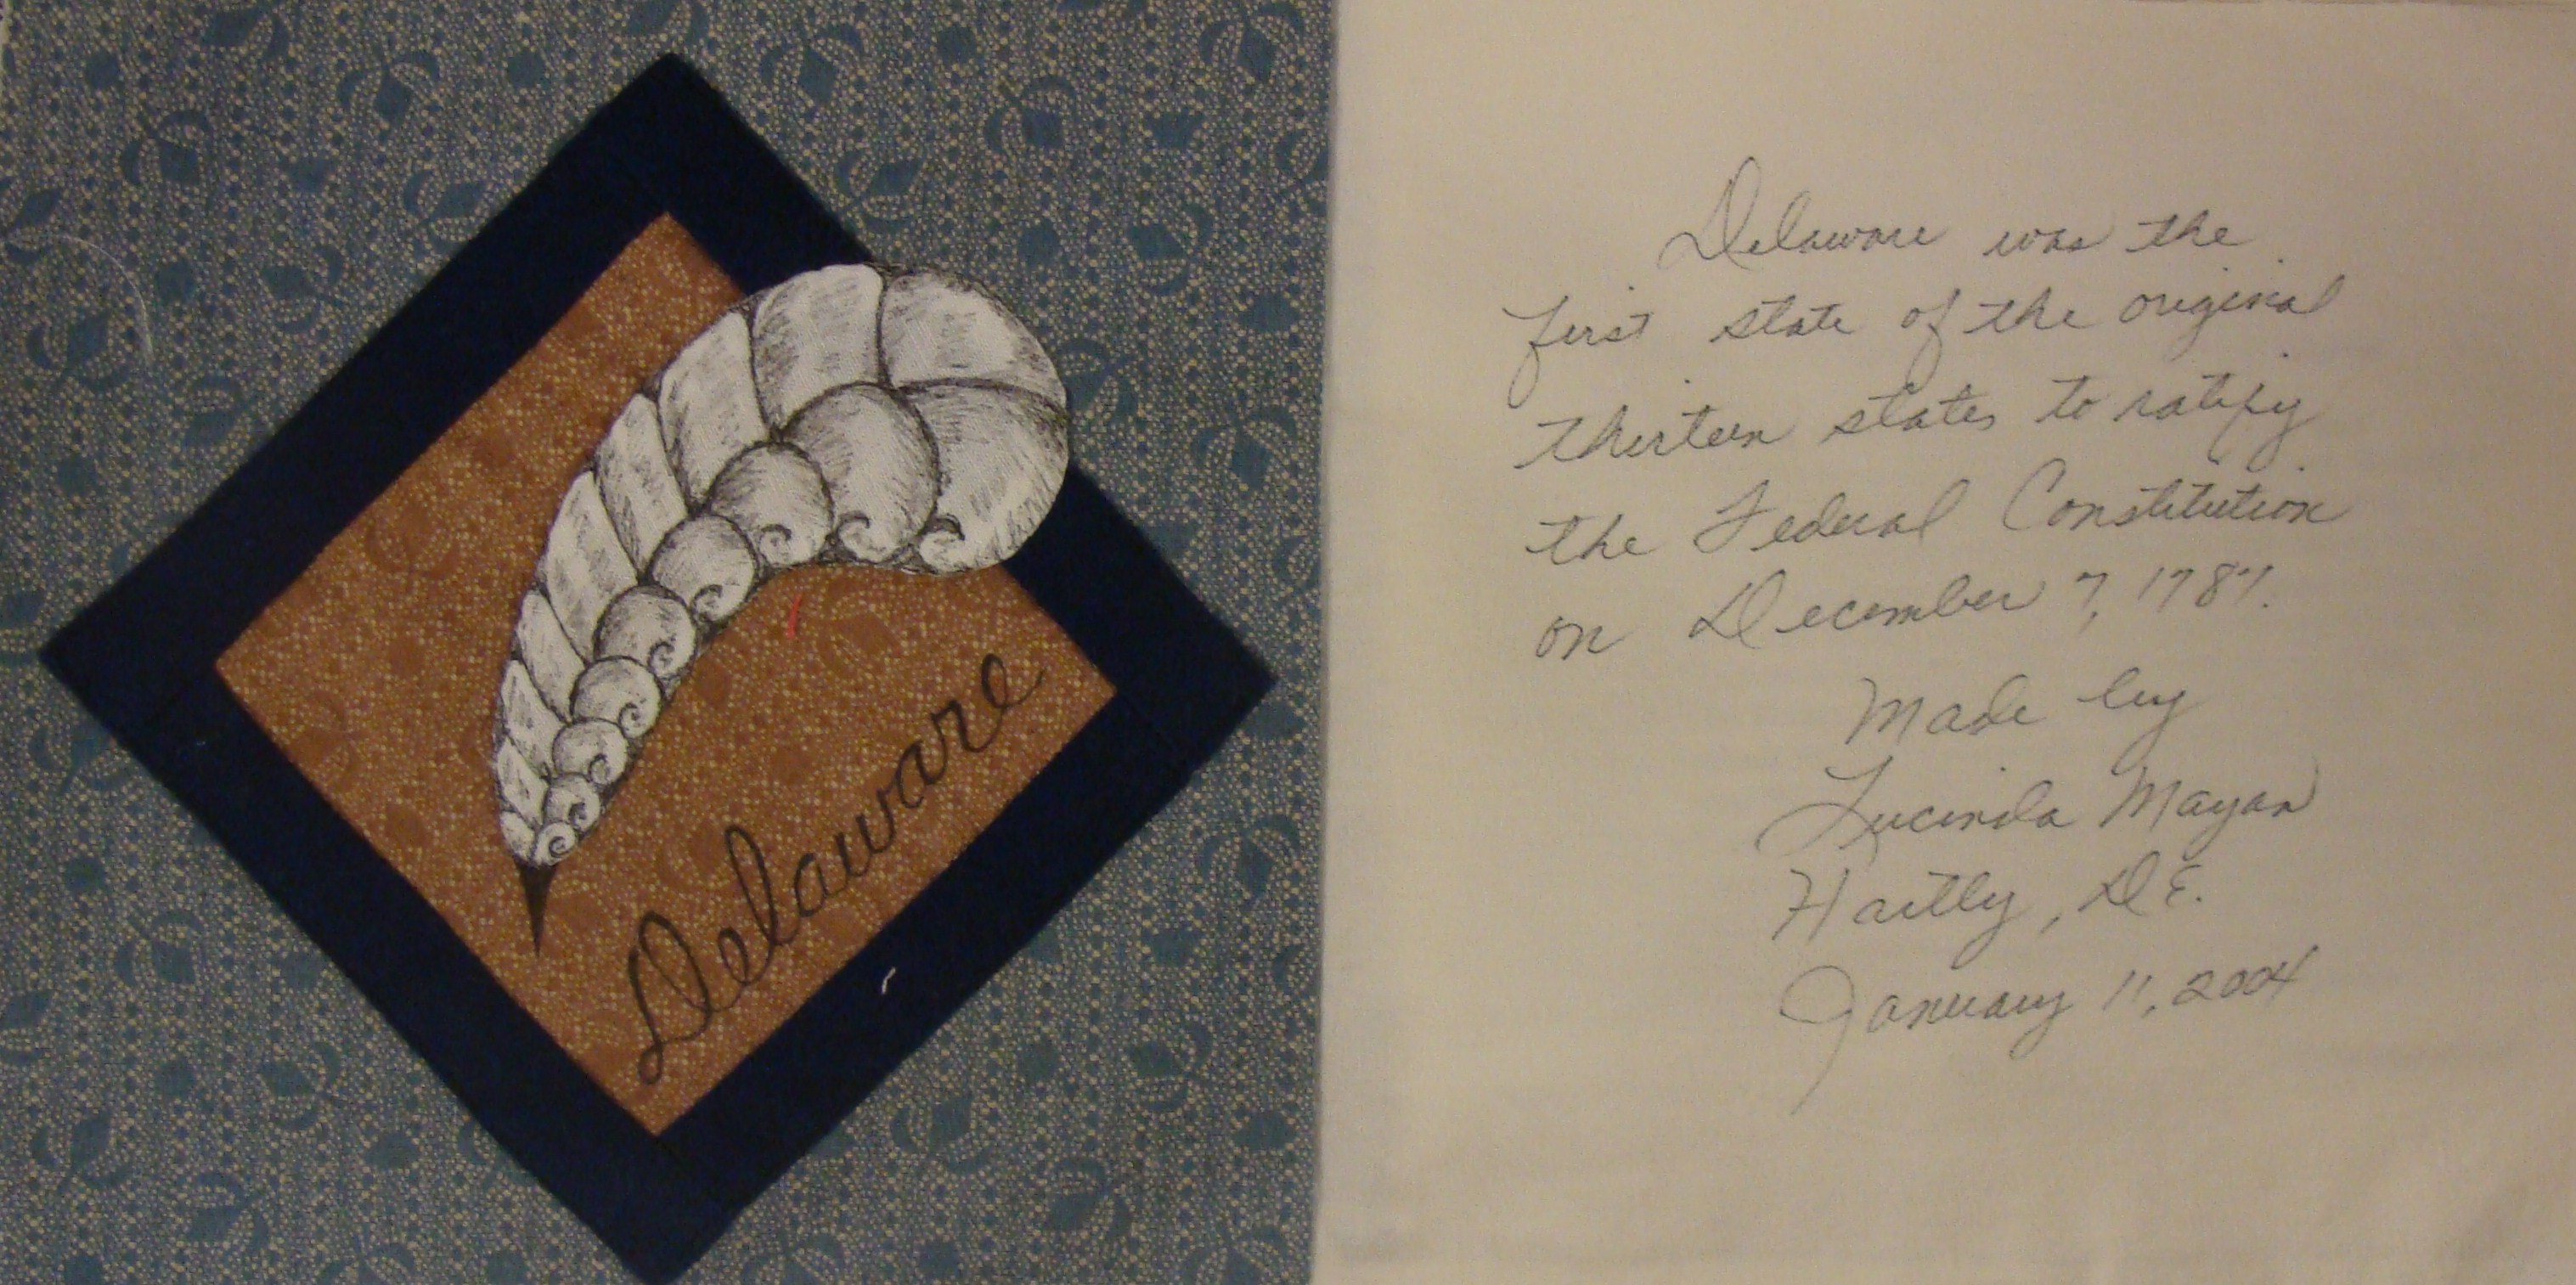 Delaware
Delaware was the
first state of the original
thirteen states to ratify
the Federal Constitution
on December 7, 1787.
Made by
Lucinda Mayan
Hartly, DE.
January 11, 2004